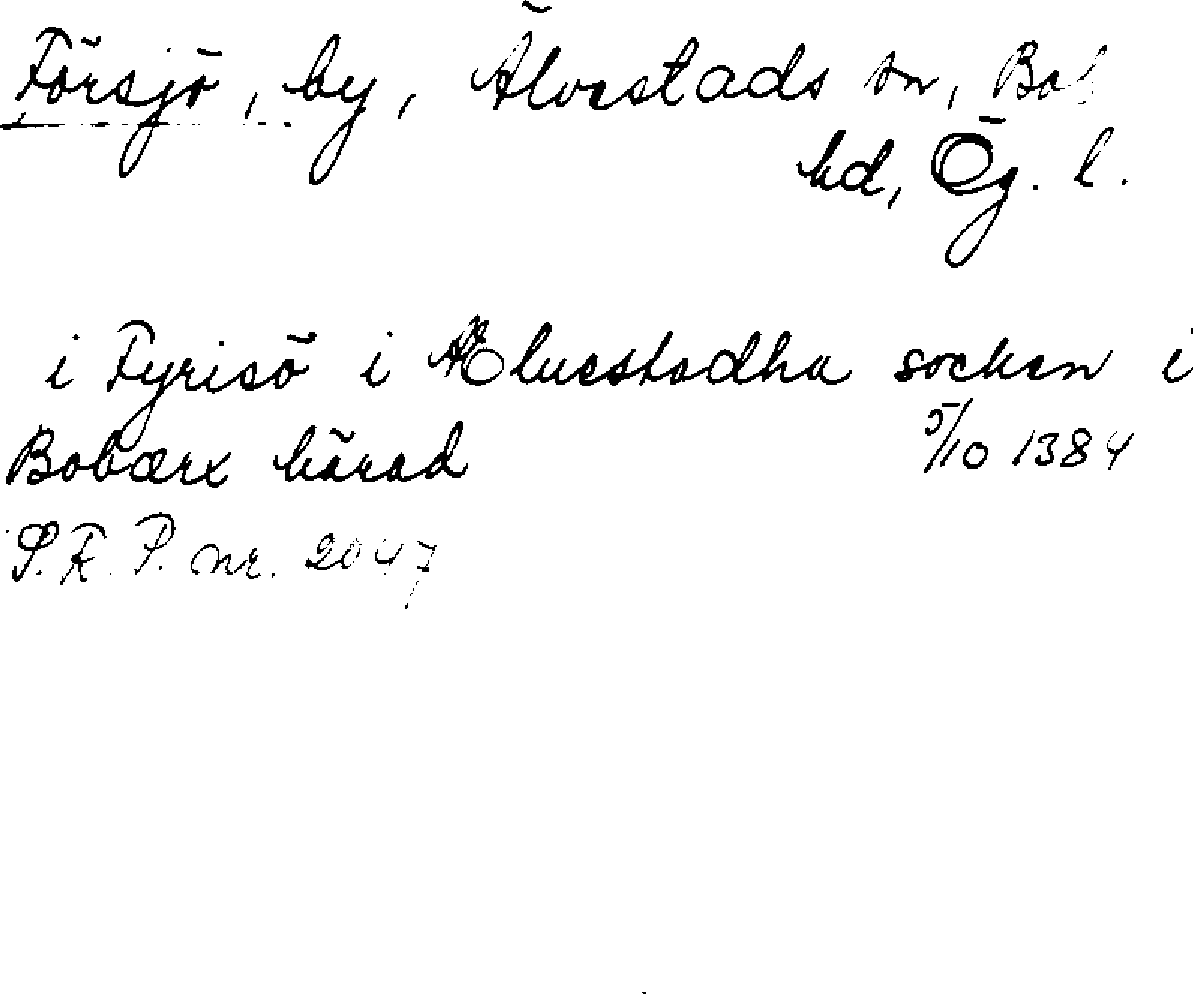 Försjö, by, Älvestads sn, Bob
hd, Ög. l.
i Fyrisö i Æluestadha socken i
Bobærx härad 5/10 1384
S.R.P. nr. 2047